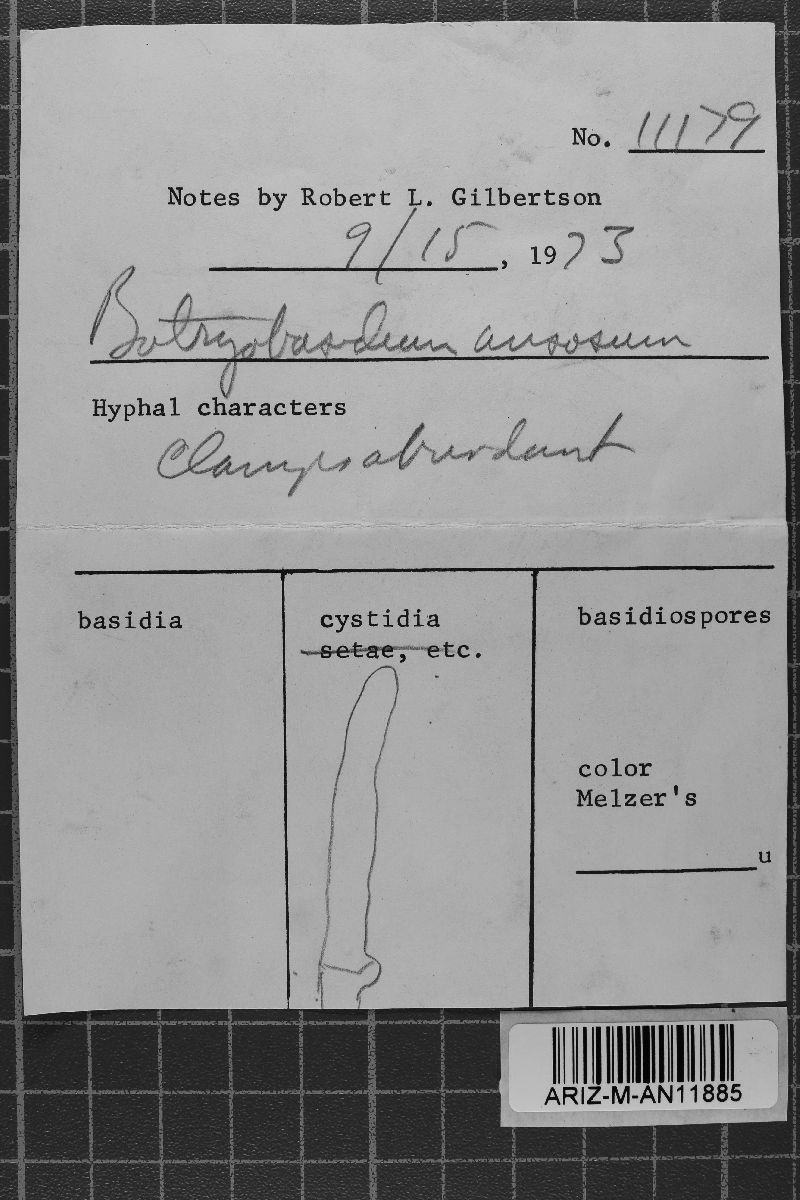 No. 11179
Notes by Robert L. Gilbertson
9/15, 1973
Botryobasidium ansosum
Hyphal characters
Clamps abundant
basidia
cystidia
setae, etc.
basidiospores
color
Melzer's
u
ARIZ-M-AN11885